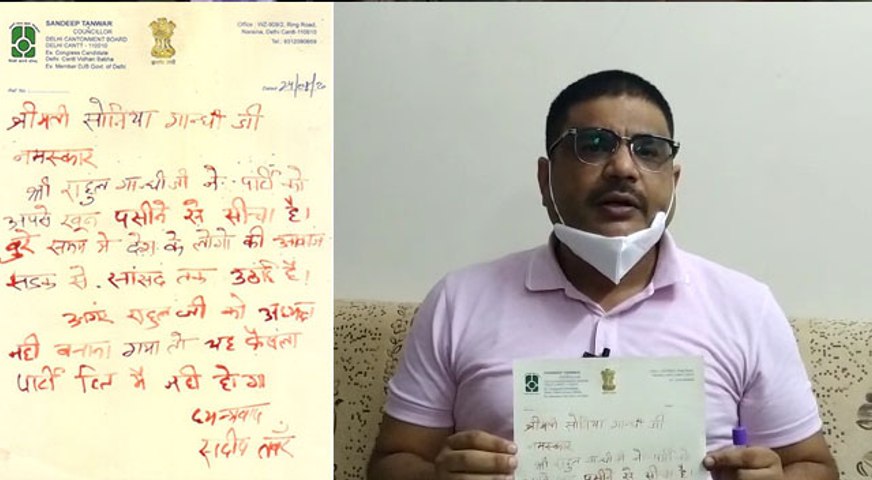 SANDEEP TANWAR
COUNCILLOR
DELHI CANTONMENT BOARD
DELHI CANTT - 110010
Ex. Congress Candidate
Delhi Cantt Vidhan Sabha
Ex. Member DJB Govt. of Delhi
Office : WZ-909/2, Ring Road,
Naraina, Delhi Cantt-110010
Ref. No.
Dated
श्रीमती सोनिया गान्धी जी
नमस्कार
श्री राहुल गान्धी जी ने पार्टी को
अपने खून पसीने से सीचा है।
बुरे समय मे देश के लोगो की आवाज
सडक से सांसद तक उठाई है।
अगर राहुल जी को अध्यक्ष
नही बनाया गया तो यह फैसला
पार्टी हित मे नही होगा
धन्यवाद
संदीप तंवर
श्रीमती सोनिया गान्धी जी
नमस्कार
श्री राहुल गान्धी जी ने पार्टी को
खून पसीने से सीचा है।